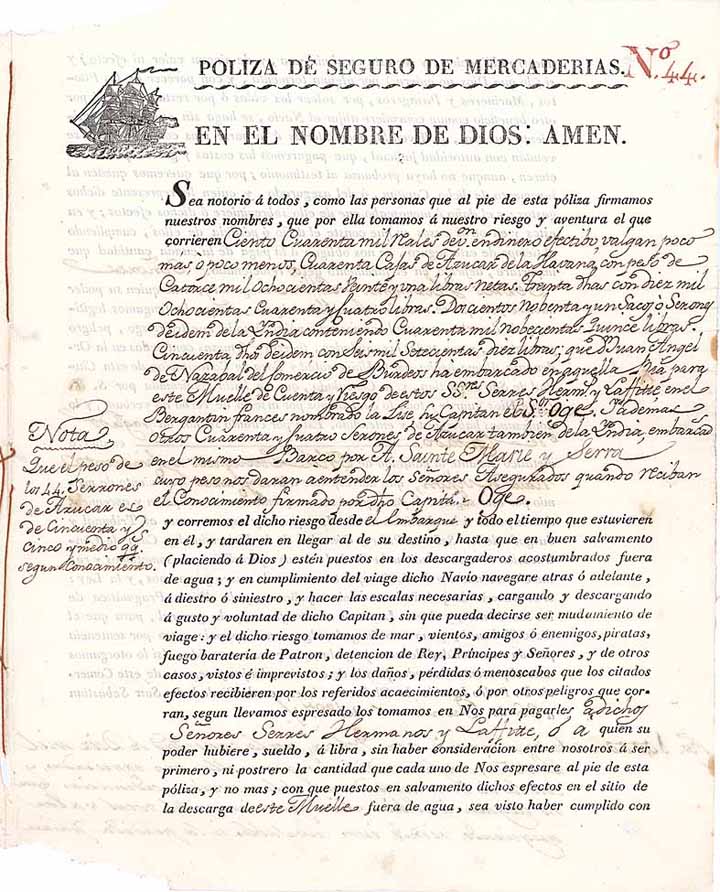 POLIZA DE SEGURO DE MERCADERIAS.
Nº. 44.
EN EL NOMBRE DE DIOS: AMEN.
Sea notorio á todos, como las personas que al pie de esta póliza firmamos
nuestros nombres, que por ella tomamos á nuestro riesgo y aventura el que
corrieren Ciento Cuarenta mil Reales de von. en dinero efectibo, valgan poco
mas, o poco menos, Cuarenta Cajas. de Azucar de la Havana, con peso de
Catorce mil Ochocientas Veinte y una libras netas. Treynta dhas con diez mil
Ochocientas Cuarenta y Cuatro libras. Docientos Nobenta y un Sacos o Serones
de idem de la Yndia conteniendo Cuarenta mil nobecientas Quince libras.
Cincuenta, dhos de idem con Seis mil Setecientas diez libras; que Dn. Juan Angel
de Nazabal del Comercio de Burdeos ha embarcado en aquella Ria para
este Muelle de Cuenta y Riesgo de estos SSres. Serres Hermos. y Laffitte, en el
Bergantin frances nombrado la Lise, su Capitan el Sor. Oge. Y ademas
otros Cuarenta y Cuatro Serones de Azucar tambien de la Yndia, embarcados
en el mismo Barco por A. Sainte Marie y Serra
cuyo peso nos daran a entender los Señores Asegurados quando reciban
el Conocimiento firmado por dho Capitn. Oge.
Nota
Que el peso de
los 44. Serrones
de Azucar es
de Cincuenta y
Cinco y medio qq.
segun Conocimiento.
y corremos el dicho riesgo desde el Embarque y todo el tiempo que estuvieren
en él, y tardaren en llegar al de su destino, hasta que en buen salvamento
(placiendo á Dios) estén puestos en los descargaderos acostumbrados fuera
de agua; y en cumplimiento del viage dicho Navio navegare atras ó adelante,
á diestro ó siniestro, y hacer las escalas necesarias, cargando y descargando
á gusto y voluntad de dicho Capitan, sin que pueda decirse ser mudamiento de
viage: y el dicho riesgo tomamos de mar, vientos, amigos ó enemigos, piratas,
fuego baratería de Patron, detencion de Rey, Príncipes y Señores, y de otros
casos, vistos é imprevistos; y los daños, pérdidas ó menoscabos que los citados
efectos recibieren por los referidos acaecimientos, ó por otros peligros que cor-
ran, segun llevamos espresado los tomamos en Nos para pagarles a dichos
Señores Serres Hermanos y Laffitte, ó a quien su
poder hubiere, sueldo, á libra, sin haber consideracion entre nosotros á ser
primero, ni postrero la cantidad que cada uno de Nos espresare al pie de esta
póliza, y no mas; con que puestos en salvamento dichos efectos en el sitio de
la descarga de este Muelle fuera de agua, sea visto haber cumplido con